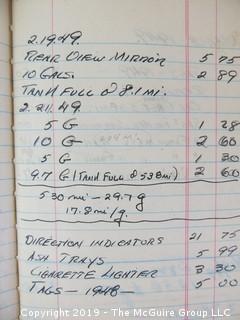 2.19.49.
REAR VIEW MIRROR 5 75
10 GALS. 2 89
TANK FULL @ 8.1 mi.
2.21.49
5 G 1 28
10 G 2 60
5 G 1 30
9.7 G (TANK FULL @ 538 mi) 2 60
530 mi — 29.7 g
17.8 mi/g.
DIRECTION INDICATORS 21 75
ASH TRAYS 5 99
CIGARETTE LIGHTER 3 30
TAGS — 1948 — 5 00
Copyright 2019 - The McGuire Group, LLC